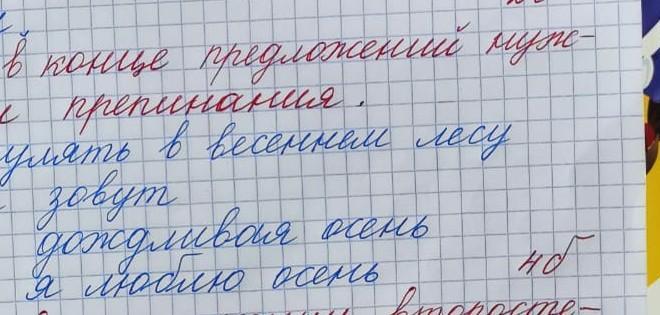 в конце предложений нуж-
препинания.
улять в весеннем лесу
зовут
дождливая осень
я люблю осень 4б
второсте-